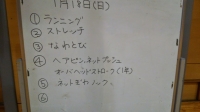 1月18日(日)
① ランニング
② ストレッチ
③ なわとび
④ ヘアピン.ネットプッシュ
オーバーヘッドストローク(1年)
⑤ ネットぎわノック
⑥